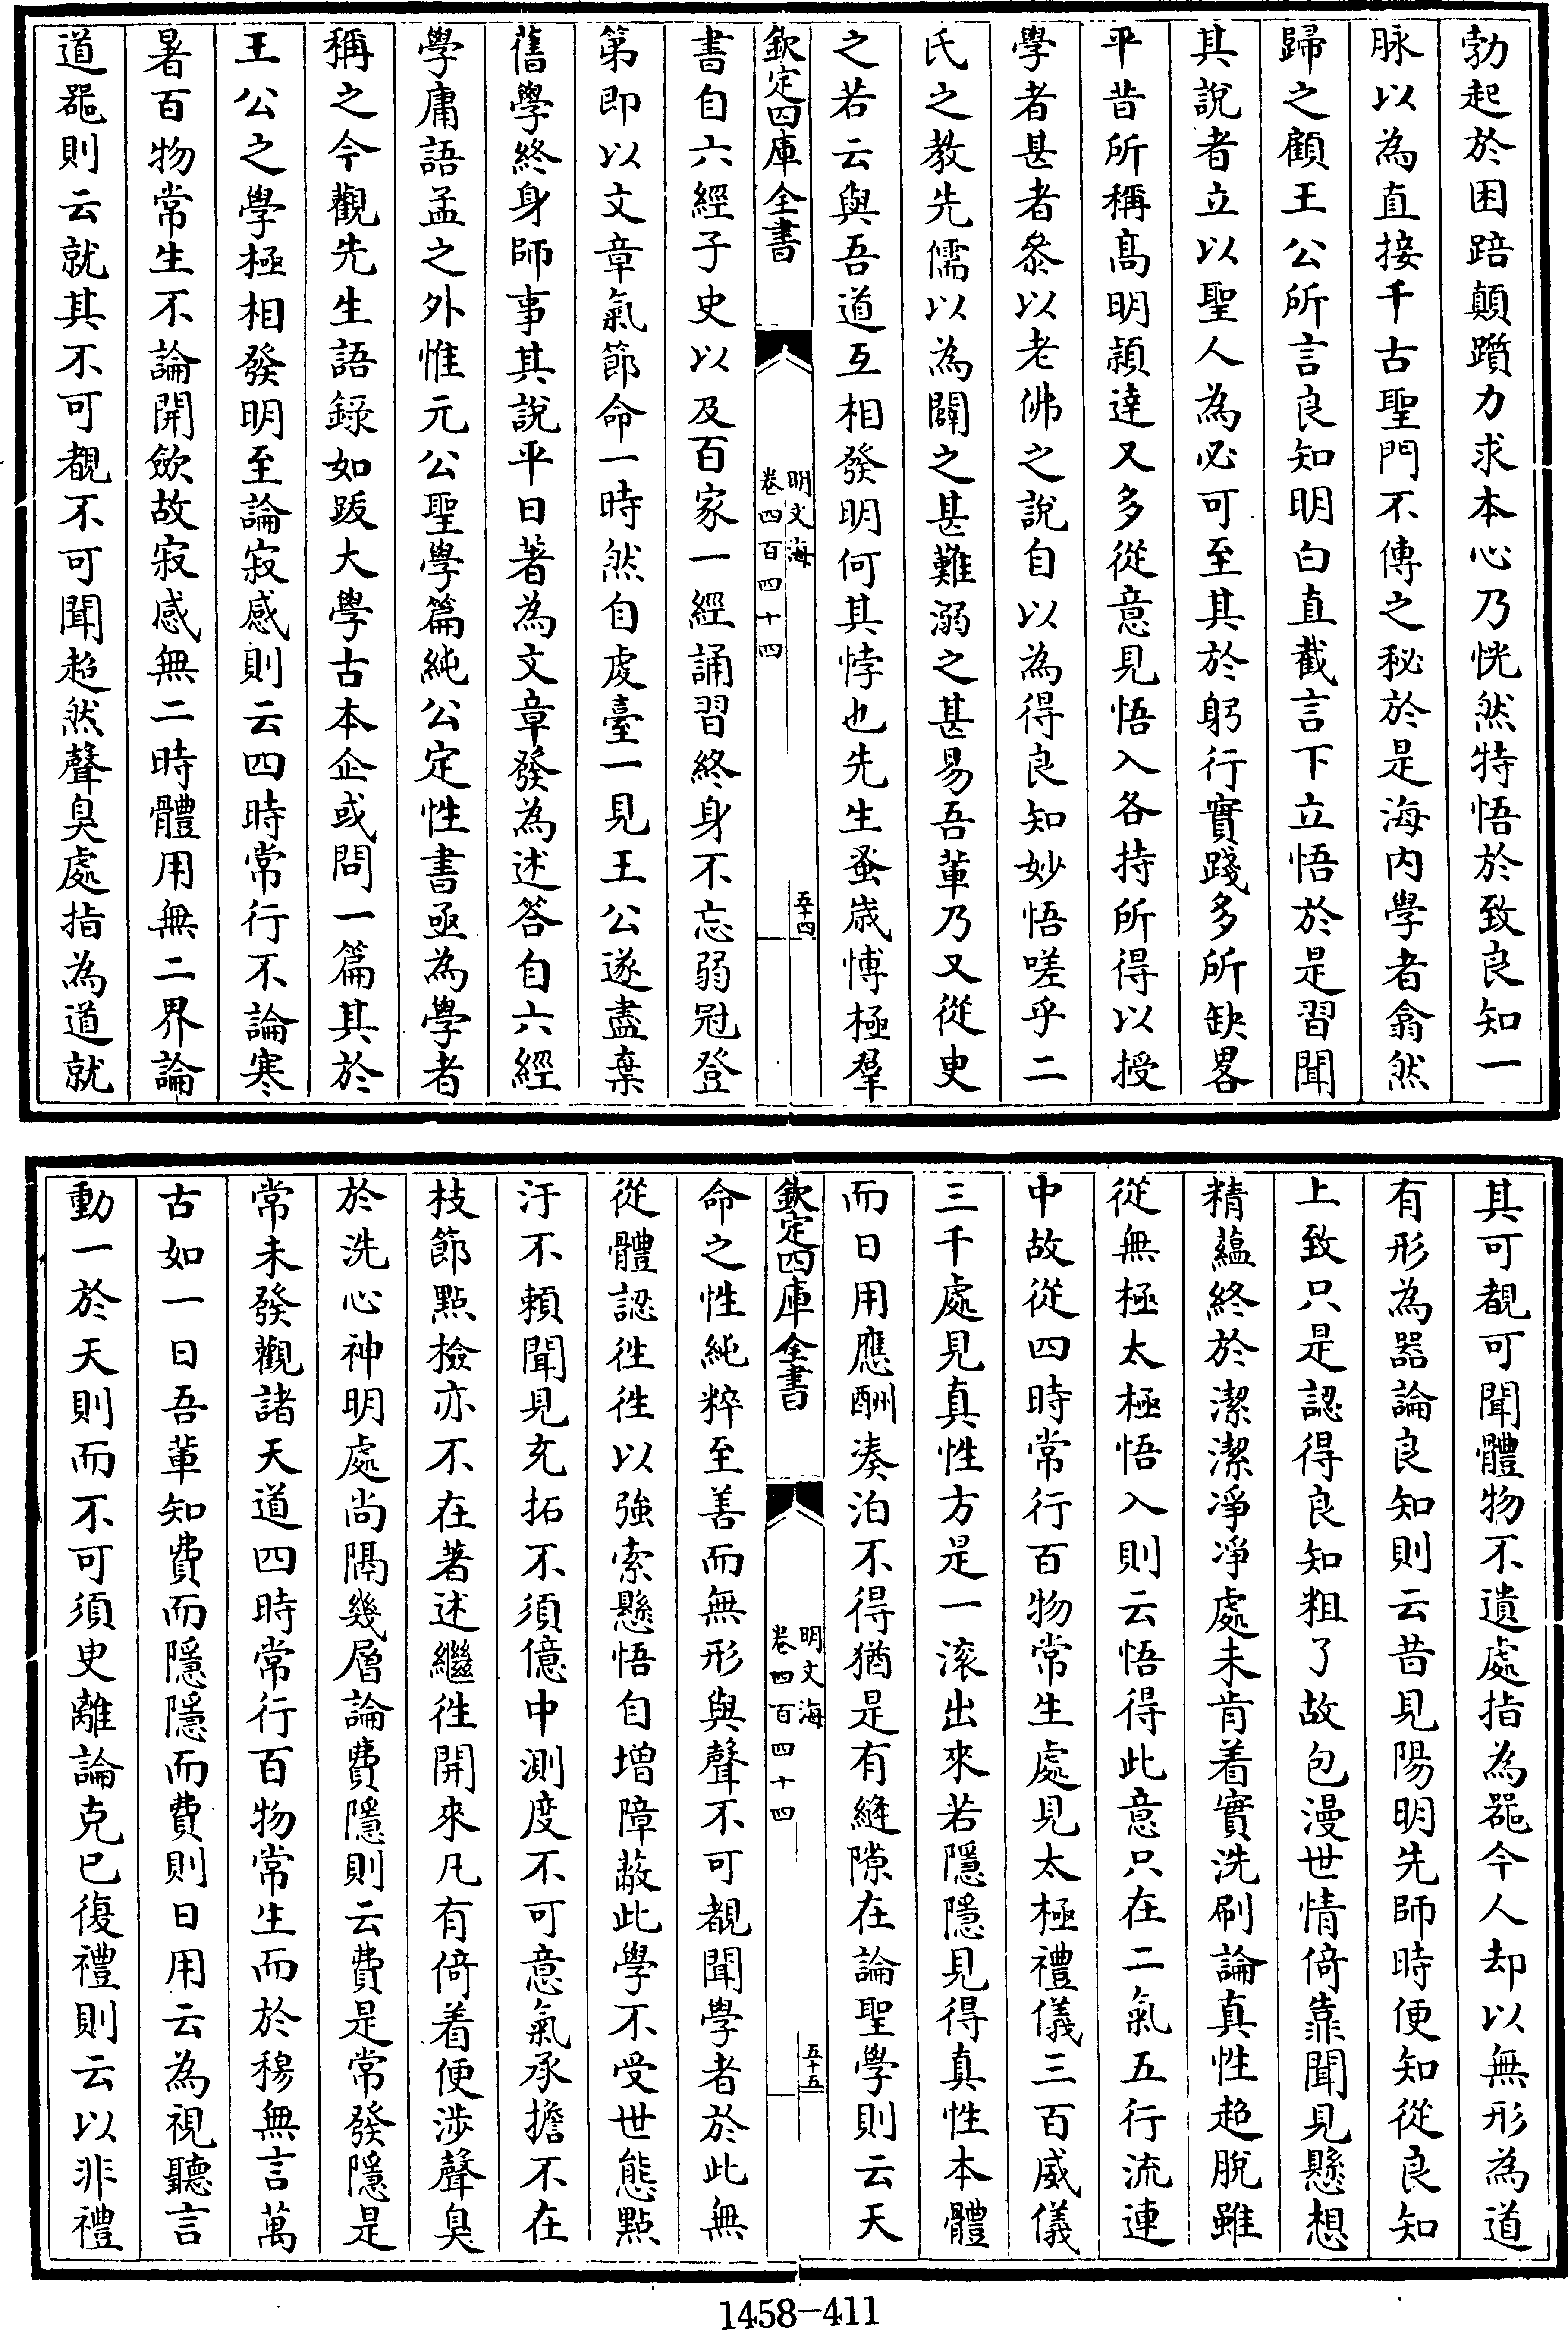 勃起於困踣顛躓力求本心乃恍然特悟於致良知一
脉以為直接千古聖門不傳之秘於是海內學者翕然
歸之顧王公所言良知明白直截言下立悟於是習聞
其說者立以聖人為必可至其於躬行實踐多所缺畧
平昔所稱髙明頴達又多從意見悟入各持所得以授
學者甚者叅以老佛之說自以為得良知妙悟嗟乎二
氏之教先儒以為闢之甚難溺之甚易吾輩乃又從臾
之若云與吾道互相發明何其悖也先生蚤歳博極羣
欽定四庫全書
明文海
卷四百四十四
五十四
書自六經子史以及百家一經誦習終身不忘弱冠登
第即以文章氣節命一時然自䖏臺一見王公遂盡棄
舊學終身師事其說平日著為文章發為述答自六經
學庸語孟之外惟元公聖學篇純公定性書亟為學者
稱之今觀先生語錄如跋大學古本企或問一篇其於
王公之學極相發明至論寂感則云四時常行不論寒
暑百物常生不論開歛故寂感無二時體用無二界論
道噐則云就其不可覩不可聞超然聲臭處指為道就
其可覩可聞體物不遺處指為噐今人却以無形為道
有形為器論良知則云昔見陽明先師時便知從良知
上致只是認得良知粗了故包漫世情倚靠聞見懸想
精蘊終於潔潔凈凈處未肯着實洗刷論真性超脫雖
從無極太極悟入則云悟得此意只在二氣五行流連
中故從四時常行百物常生處見太極禮儀三百威儀
三千處見真性方是一滚出來若隱隱見得真性本體
而日用應酬湊泊不得猶是有縫隙在論聖學則云天
欽定四庫全書
明文海
卷四百四十四
五十五
命之性純粹至善而無形與聲不可覩聞學者於此無
從體認徃徃以強索懸悟自增障蔽此學不受世態點
汙不賴聞見充拓不須億中測度不可意氣承擔不在
枝節點檢亦不在著述繼徃開來凡有倚着便涉聲臭
於洗心神明處尚隔幾層論費隱則云費是常發隱是
常未發觀諸天道四時常行百物常生而於穆無言萬
古如一日吾輩知費而隱隱而費則日用云為視聽言
動一於天則而不可須臾離論克巳復禮則云以非禮
1458-411